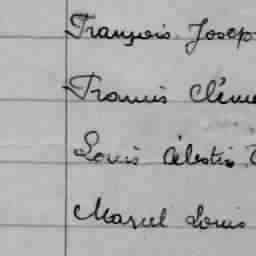 François Josep
Francis Cléme
Louis Célestin
Marcel Louis